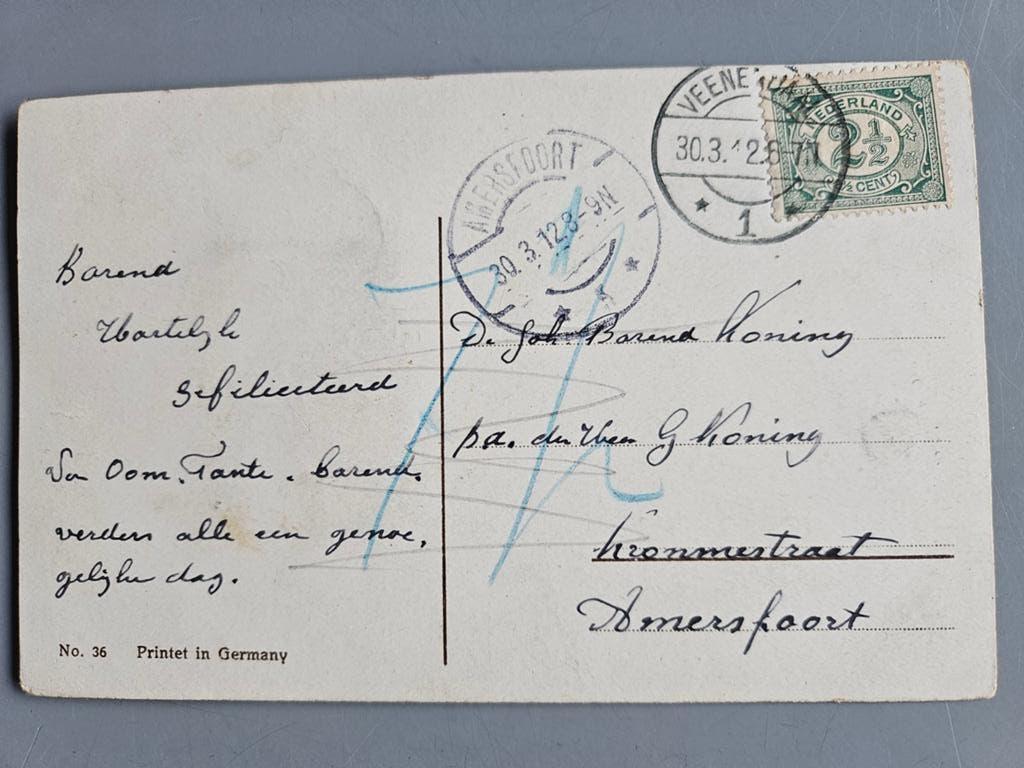 VEENENDAAL
30.3.12.6-7N
1
NEDERLAND
2½
2½ CENT
AMERSFOORT
30.3.12.8-9N
Barend
Hartelijk
Gefiliciteerd
Van Oom. Tante. Barend.
verders alle een genoe,
gelijke dag.
No. 36 Printet in Germany
De Joh. Barend Koning
pa. den Heer G Koning
Krommestraat
Amersfoort